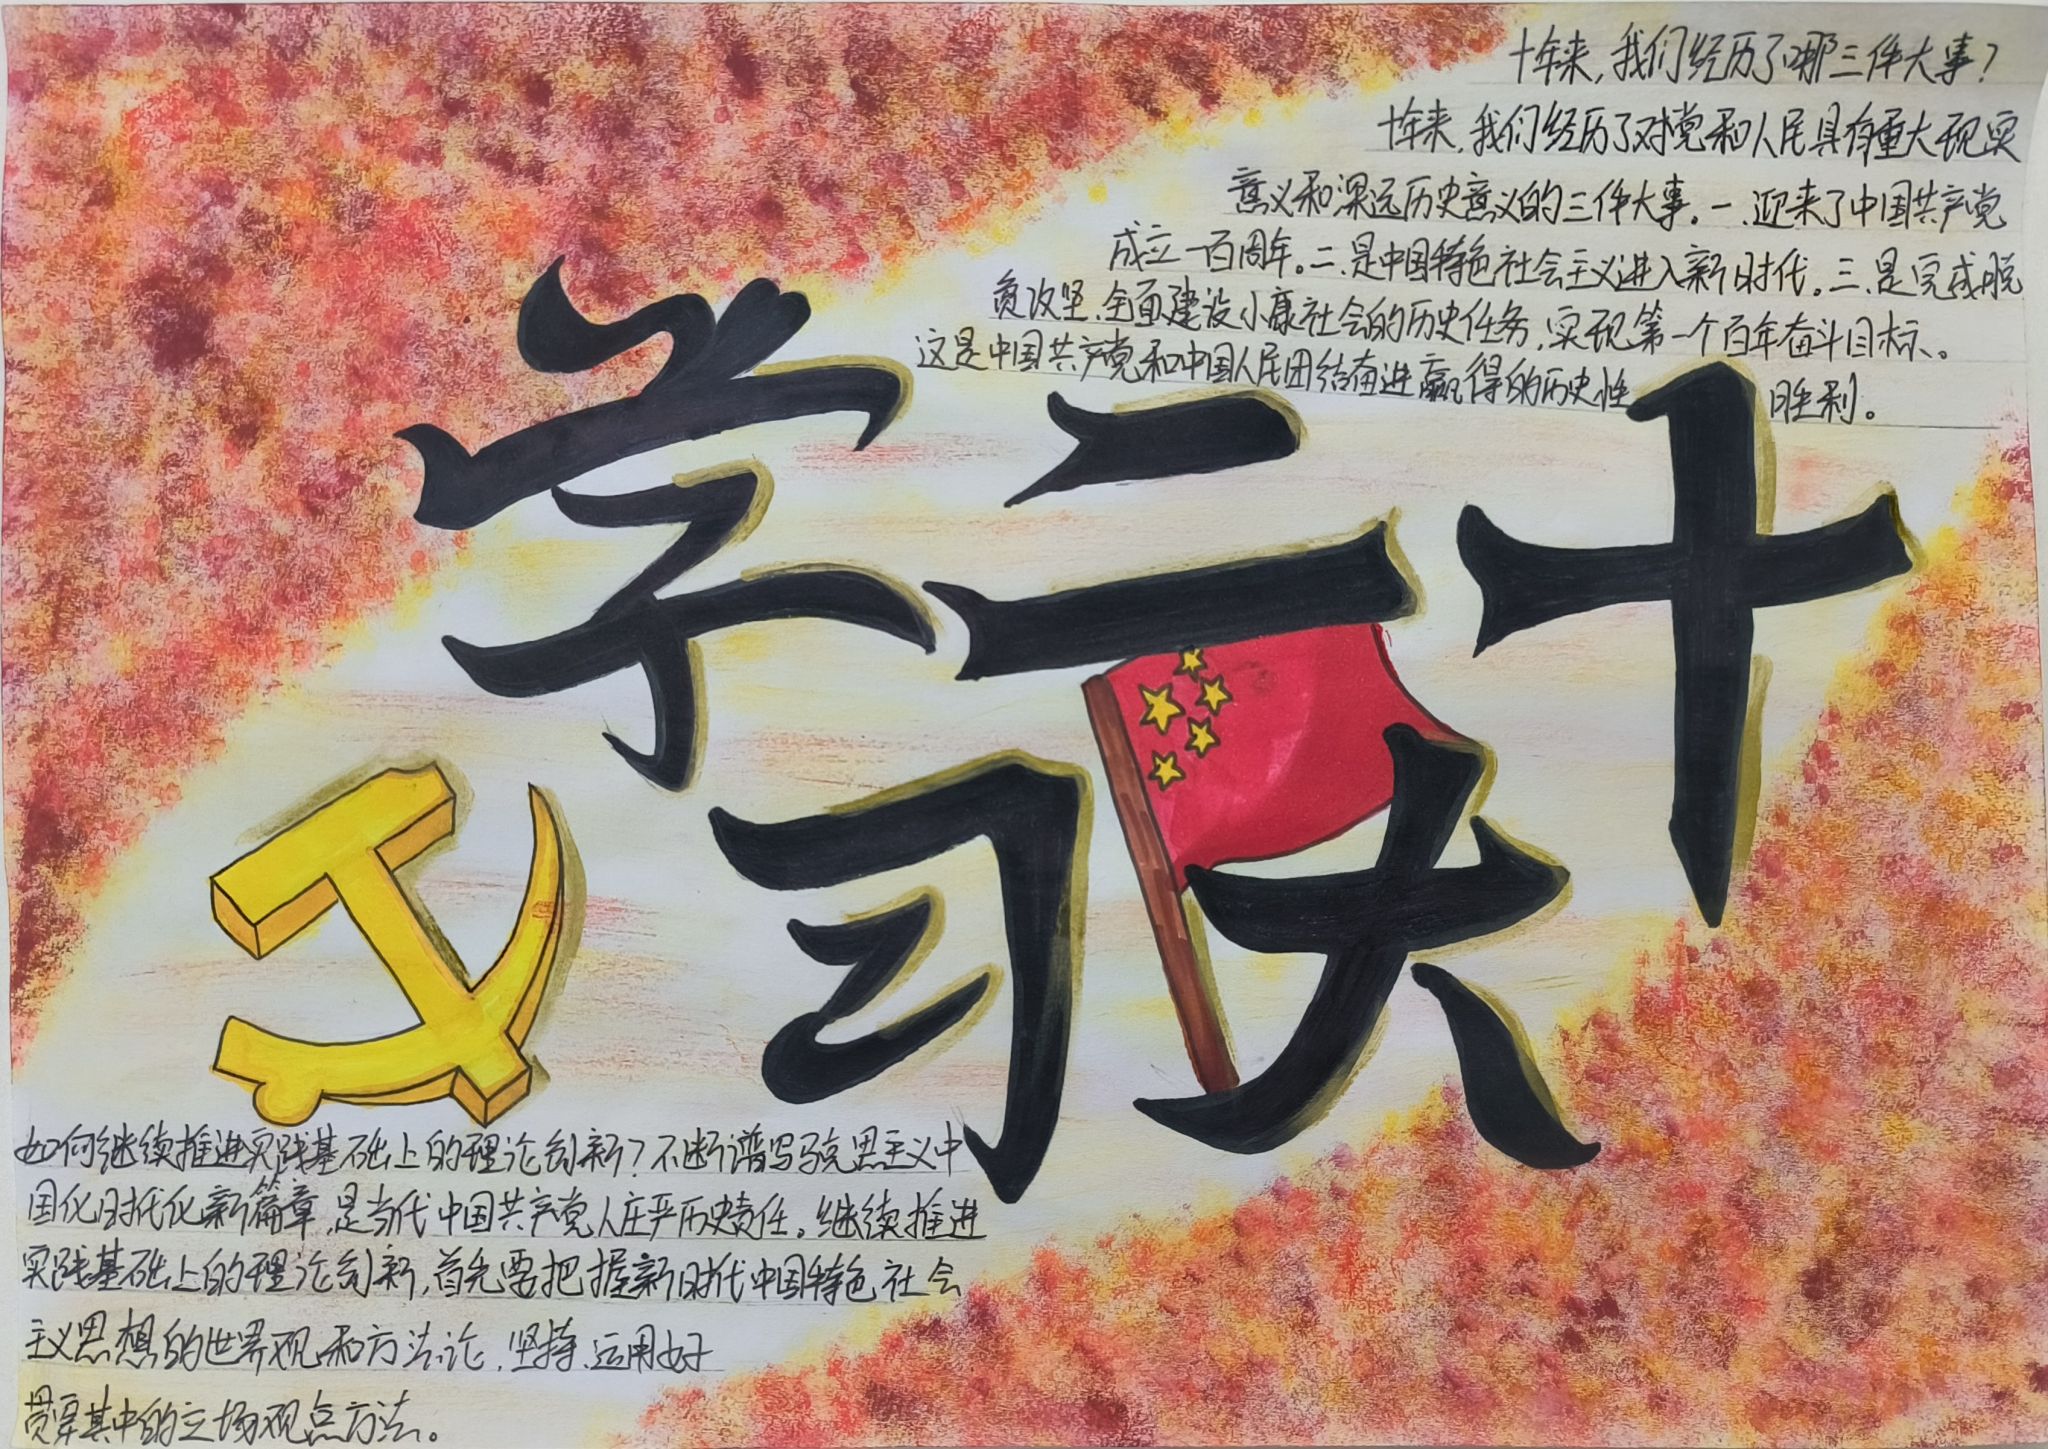 十年来，我们经历了哪三件大事？
十年来，我们经历了对党和人民具有重大现实
意义和深远历史意义的三件大事。一、迎来了中国共产党
成立一百周年。二、是中国特色社会主义进入新时代。三、是完成脱
贫攻坚、全面建设小康社会的历史任务，实现第一个百年奋斗目标、。
这是中国共产党和中国人民团结奋进赢得的历史性 胜利。
学二十
习大
如何继续推进实践基础上的理论创新？不断谱写马克思主义中
国化时代化新篇章，是当代中国共产党人庄严历史责任。继续推进
实践基础上的理论创新，首先要把握新时代中国特色社会
主义思想的世界观和方法论，坚持、运用好
贯穿其中的立场观点方法。